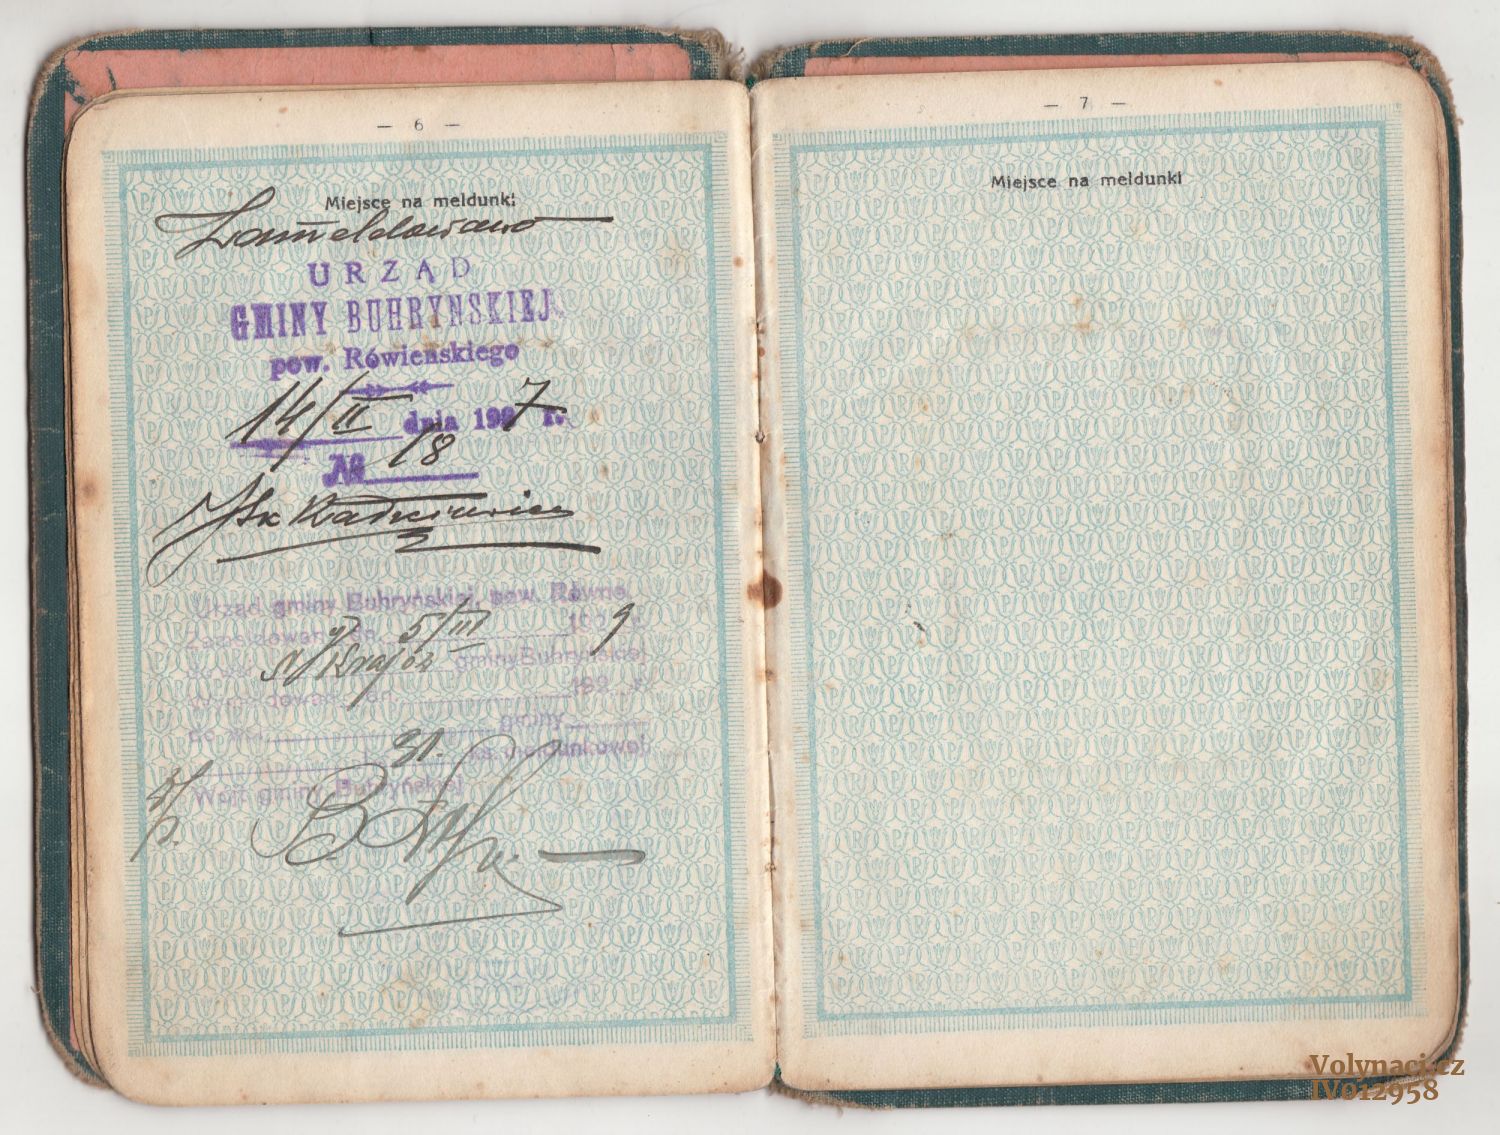 — 6 —
Miejsce na meldunki
Zameldowano
URZĄD
GMINY BUHRYNSKIEJ
pow. Rówieńskiego
14/II dnia 1927 r.
№ 18
Urząd gminy Buhryńskiej, pow. Równe
Zameldowany dn. 5/III 192 9 r.
gminy Buhryńskiej
192 r.
do wsi gminy
31. ks. meldunkowej
Wójt gminy Buhryńskiej
— 7 —
Miejsce na meldunki
Volynaci.cz
IV012958